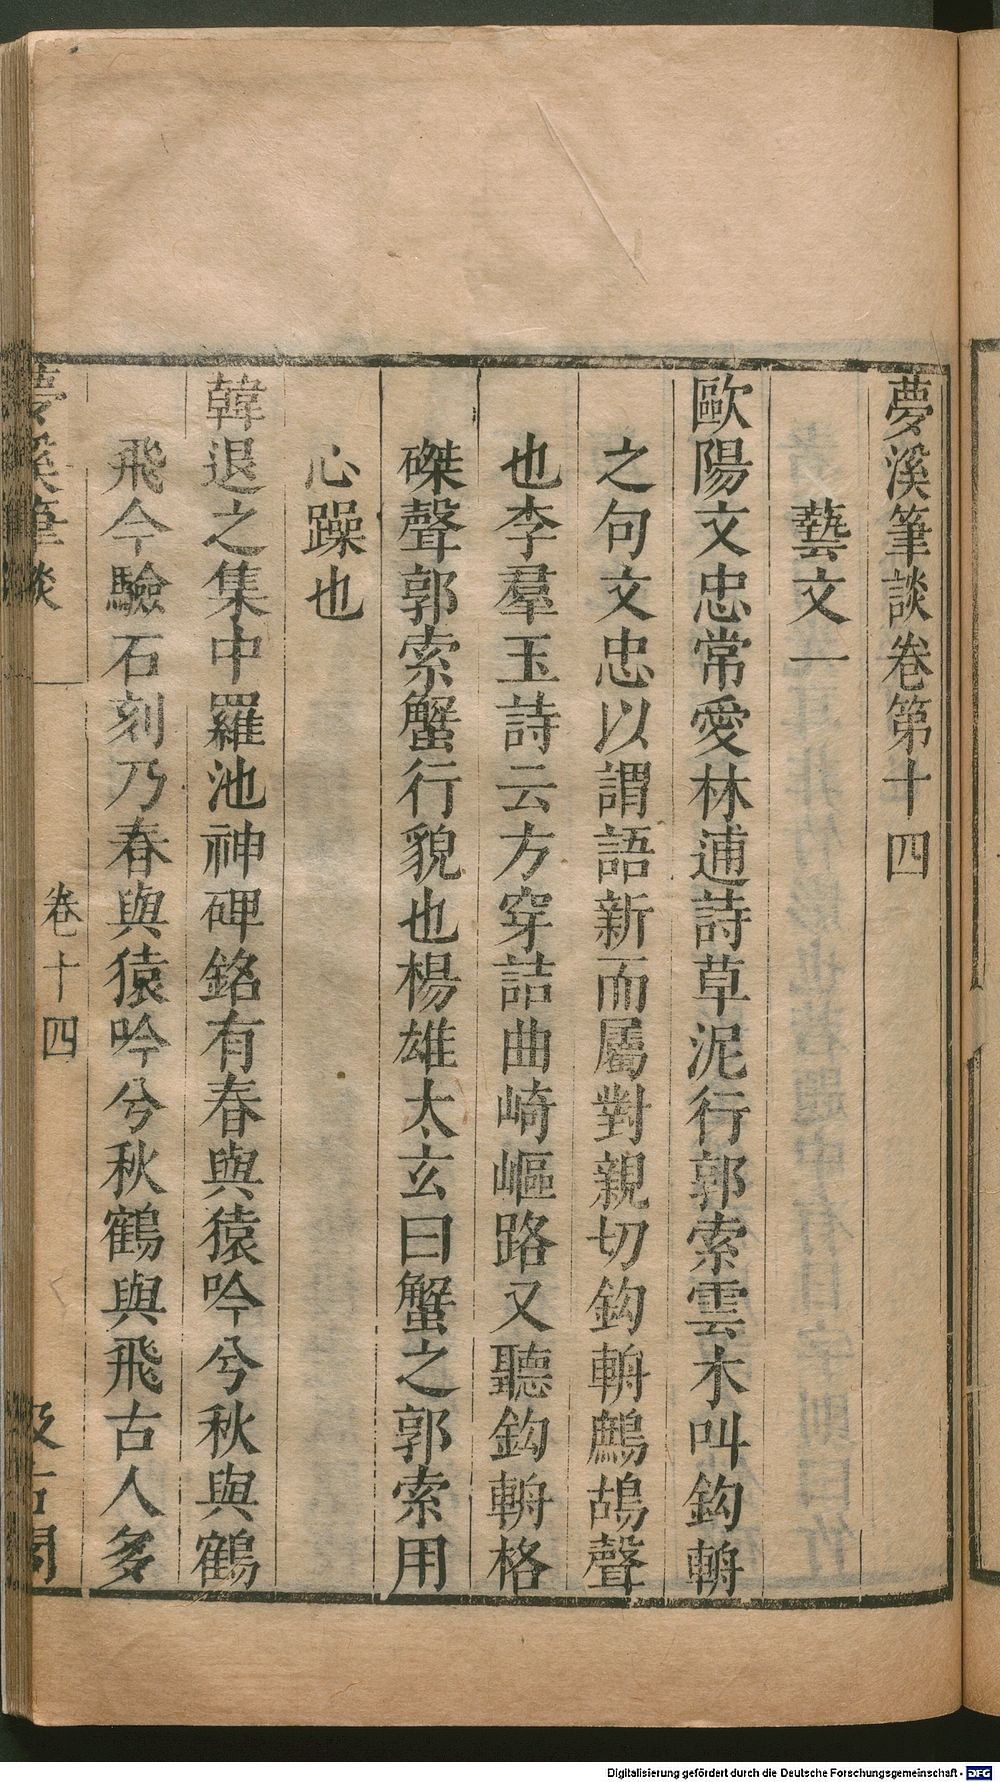 夢溪筆談卷第十四
藝文一
歐陽文忠常愛林逋詩草泥行郭索雲木叫鈎輈
之句文忠以謂語新而屬對親切鈎輈鷓鴣聲
也李羣玉詩云方穿詰曲崎嶇路又聽鈎輈格
磔聲郭索蟹行貌也楊雄太玄曰蟹之郭索用
心躁也
韓退之集中羅池神碑銘有春與猿吟兮秋與鶴
飛今驗石刻乃春與猿吟兮秋鶴與飛古人多
夢溪筆談
卷十四
汲古閣
Digitalisierung gefördert durch die Deutsche Forschungsgemeinschaft - DFG